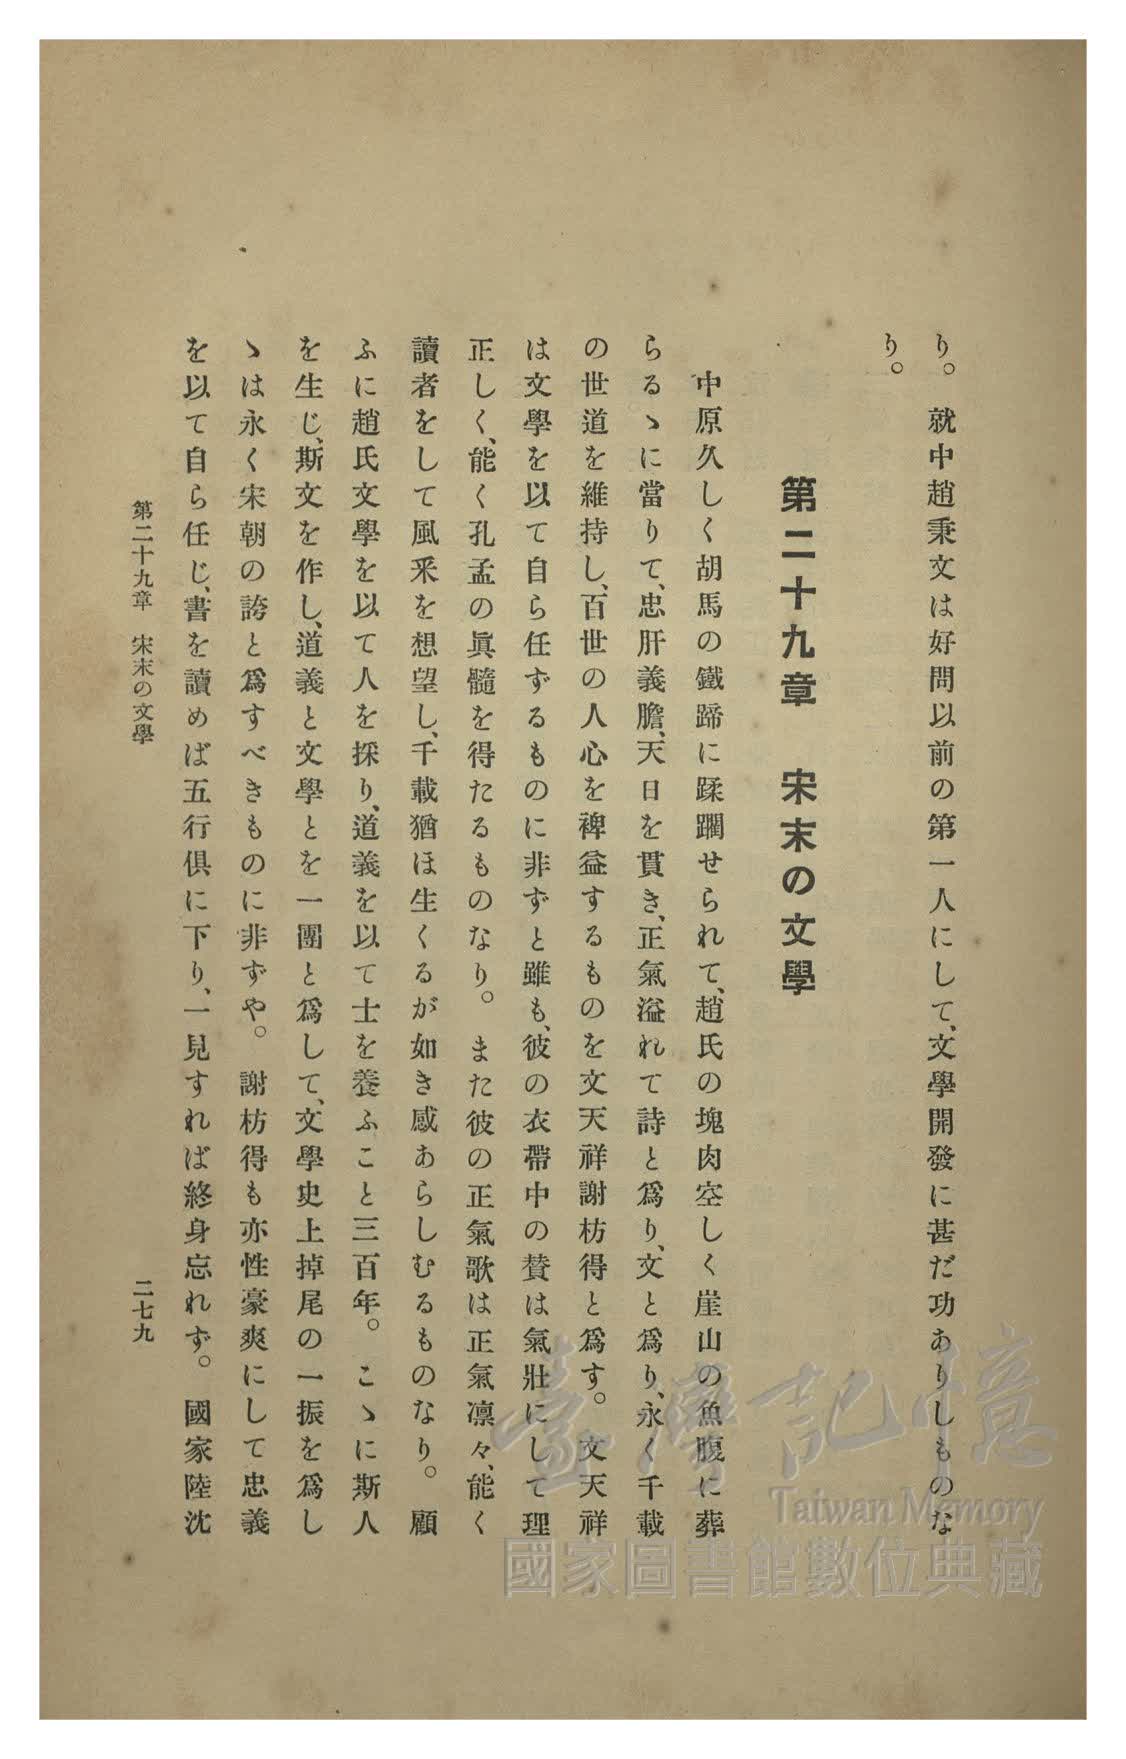 り。　就中趙秉文は好問以前の第一人にして、文學開發に甚だ功ありしものな
り。
第二十九章　宋末の文學
中原久しく胡馬の鐵蹄に蹂躙せられて、趙氏の塊肉空しく崖山の魚腹に葬
らるゝに當りて、忠肝義膽、天日を貫き、正氣溢れて詩と爲り、文と爲り、永く千載
の世道を維持し、百世の人心を裨益するものを文天祥謝枋得と爲す。　文天祥
は文學を以て自ら任ずるものに非ずと雖も、彼の衣帶中の賛は氣壯にして理
正しく、能く孔孟の眞髓を得たるものなり。　また彼の正氣歌は正氣凛々、能く
讀者をして風釆を想望し、千載猶ほ生くるが如き感あらしむるものなり。　顧
ふに趙氏文學を以て人を採り、道義を以て士を養ふこと三百年。　こゝに斯人
を生じ、斯文を作し、道義と文學とを一團と爲して、文學史上掉尾の一振を爲し
ゝは永く宋朝の誇と爲すべきものに非ずや。　謝枋得も亦性豪爽にして忠義
を以て自ら任じ、書を讀めば五行俱に下り、一見すれば終身忘れず。　國家陸沈
第二十九章　宋末の文學
二七九
臺灣記憶
Taiwan Memory
國家圖書館數位典藏